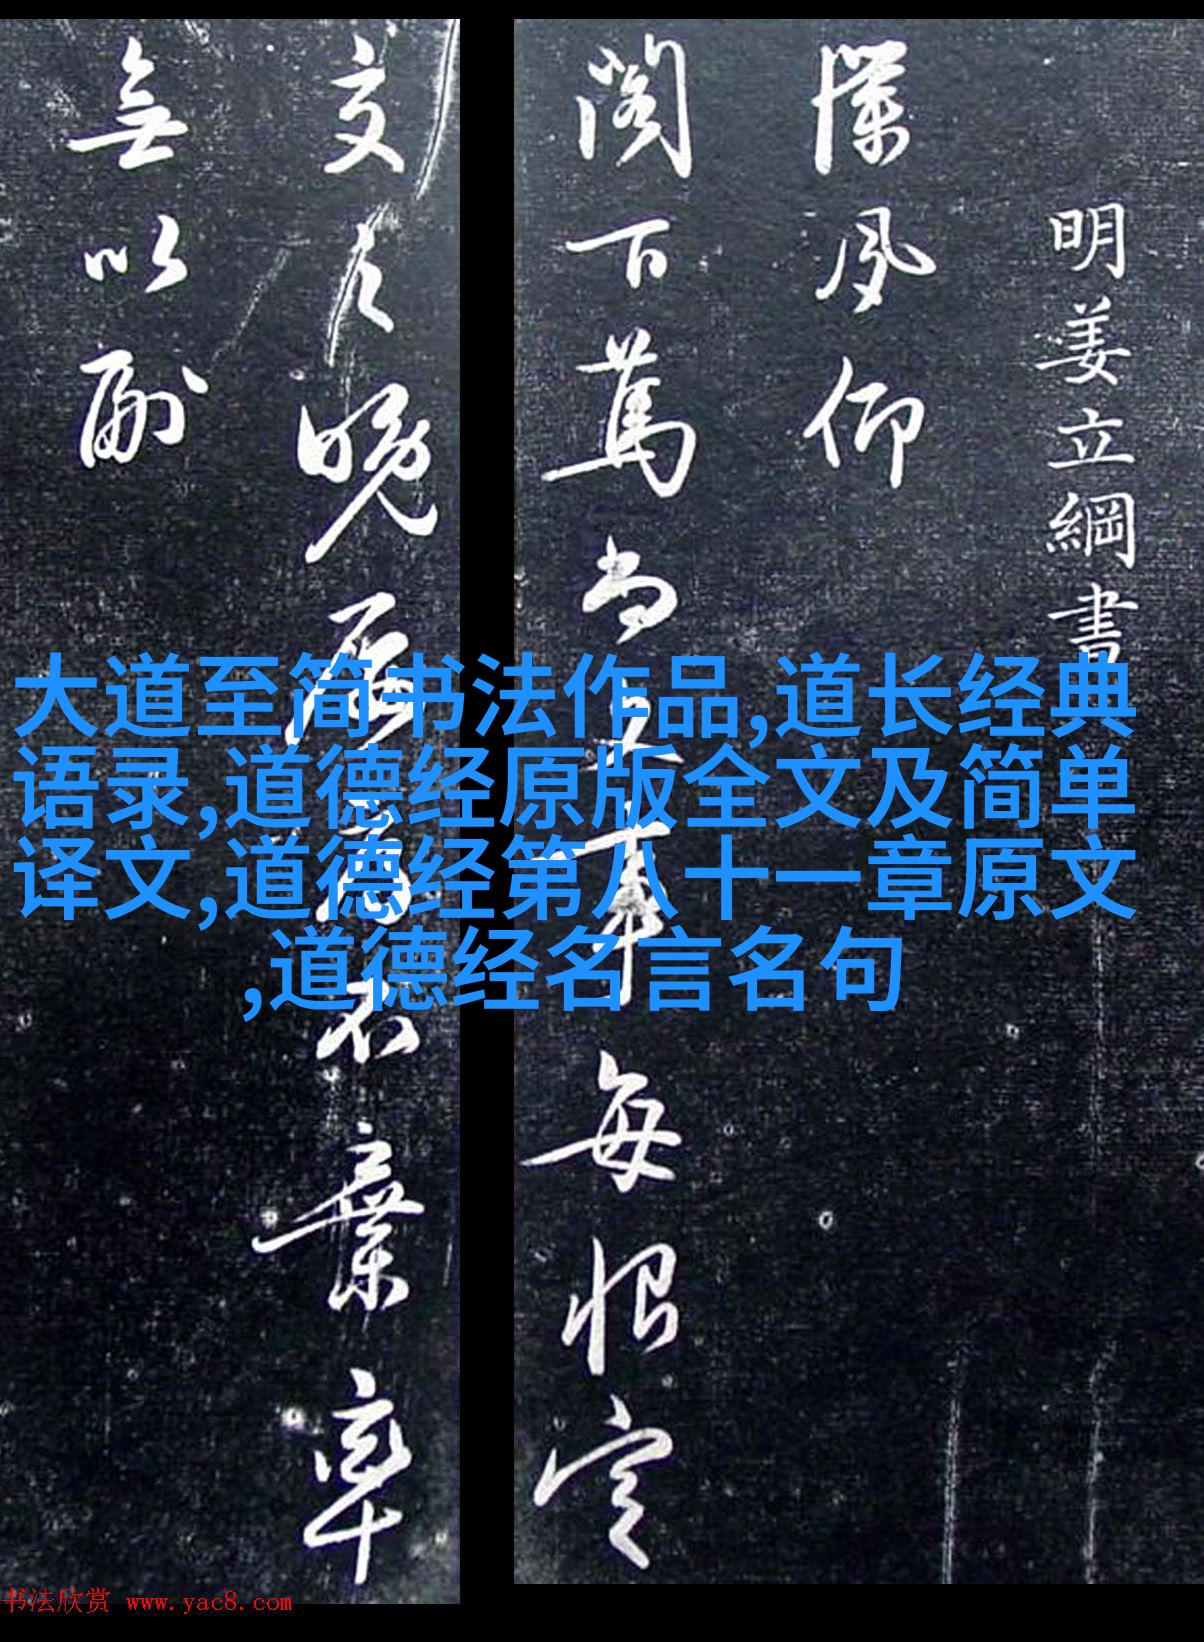 明姜立綱書
夙仰
閣萬尚主事每恨定
交之晚辱不棄率
無以副
大道至简书法作品,道长经典
语录,道德经原版全文及简单
译文,道德经第八十一章原文
,道德经名言名句
书法欣赏 www.yac8.com